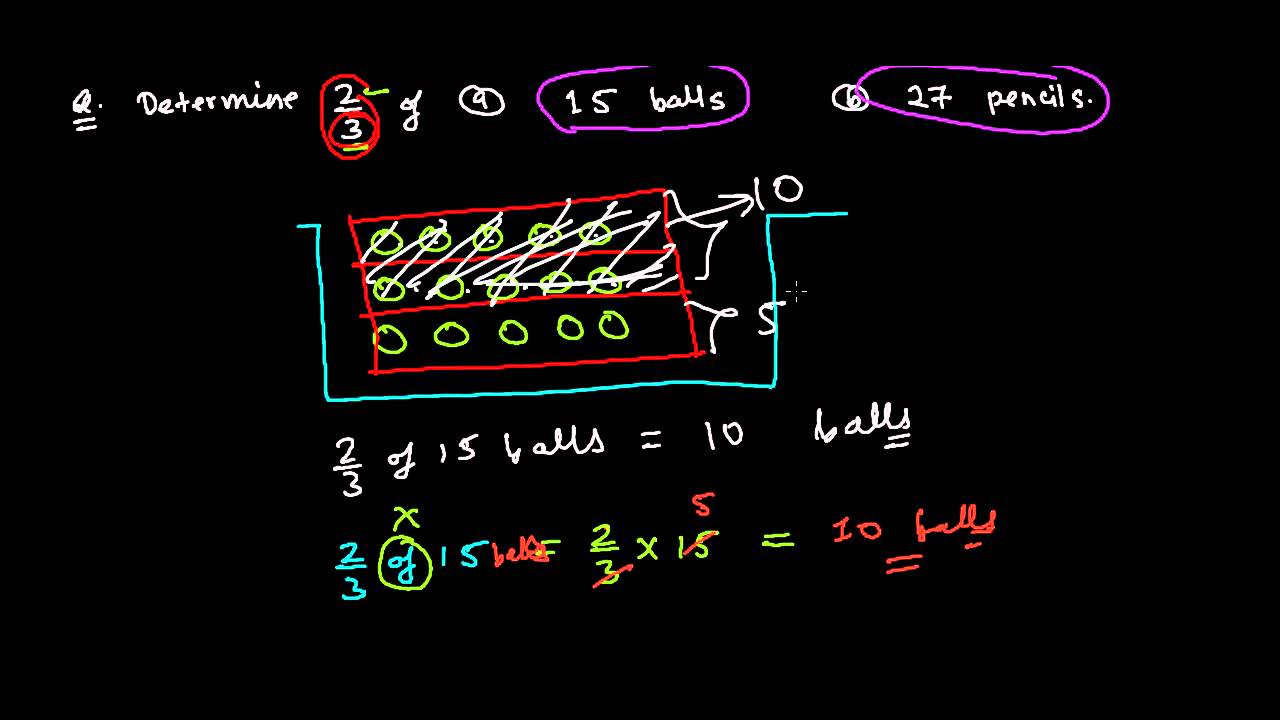 Q. Determine 2/3 of (a) 15 balls (b) 27 pencils.
10
5
2/3 of 15 balls = 10 balls
x 5
2/3 of 15 balls = 2/3 x 15 = 10 balls